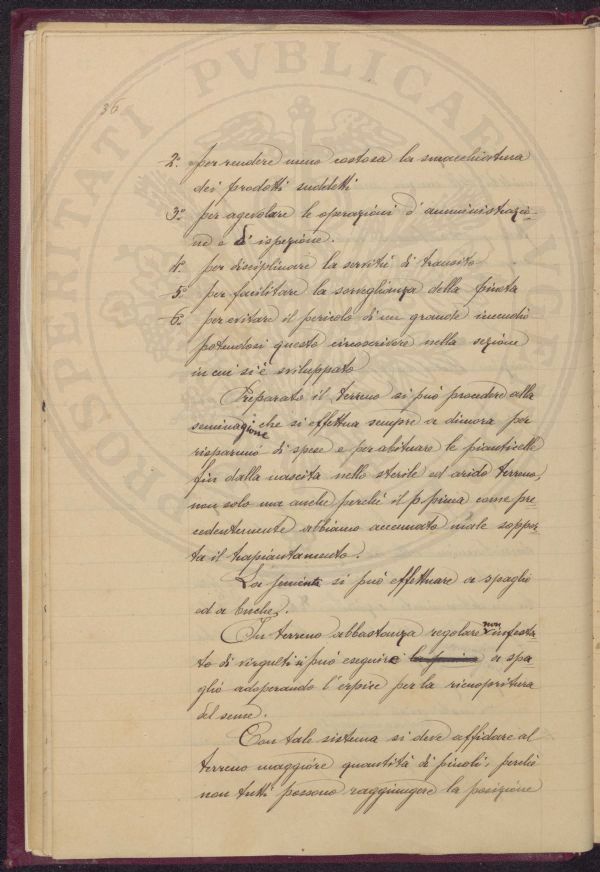 36
2.° per rendere meno costosa la smacchiatura
dei prodotti suddetti
3.° per agevolare le operazioni d'amministrazio-
ne e di ispezione.
4.° per disciplinare la servitù di transito
5.° per facilitare la sorveglianza della pineta
6.° per evitare il pericolo di un grande incendio
potendosi questo circoscrivere nella sezione
in cui si è sviluppato
Preparato il terreno si può procedere alla
seminagione che si effettua sempre a dimora per
risparmio di spese e per abituare le pianticelle
fin dalla nascita nello sterile ed arido terreno,
non solo ma anche perché il p. pinea come pre
cedentemente abbiamo accennato male soppor-
ta il trapiantamento.
La semina si può effettuare a spaglio
ed a buche.
In terreno abbastanza regolare non infesta
to di virgulti si può eseguire la semina a spa-
glio adoperando l'erpice per la ricopritura
del seme.
Con tale sistema si deve affidare al
terreno maggiore quantità di pinoli, perché
non tutti possono raggiungere la posizione
PROSPERITATI PVBLICAE